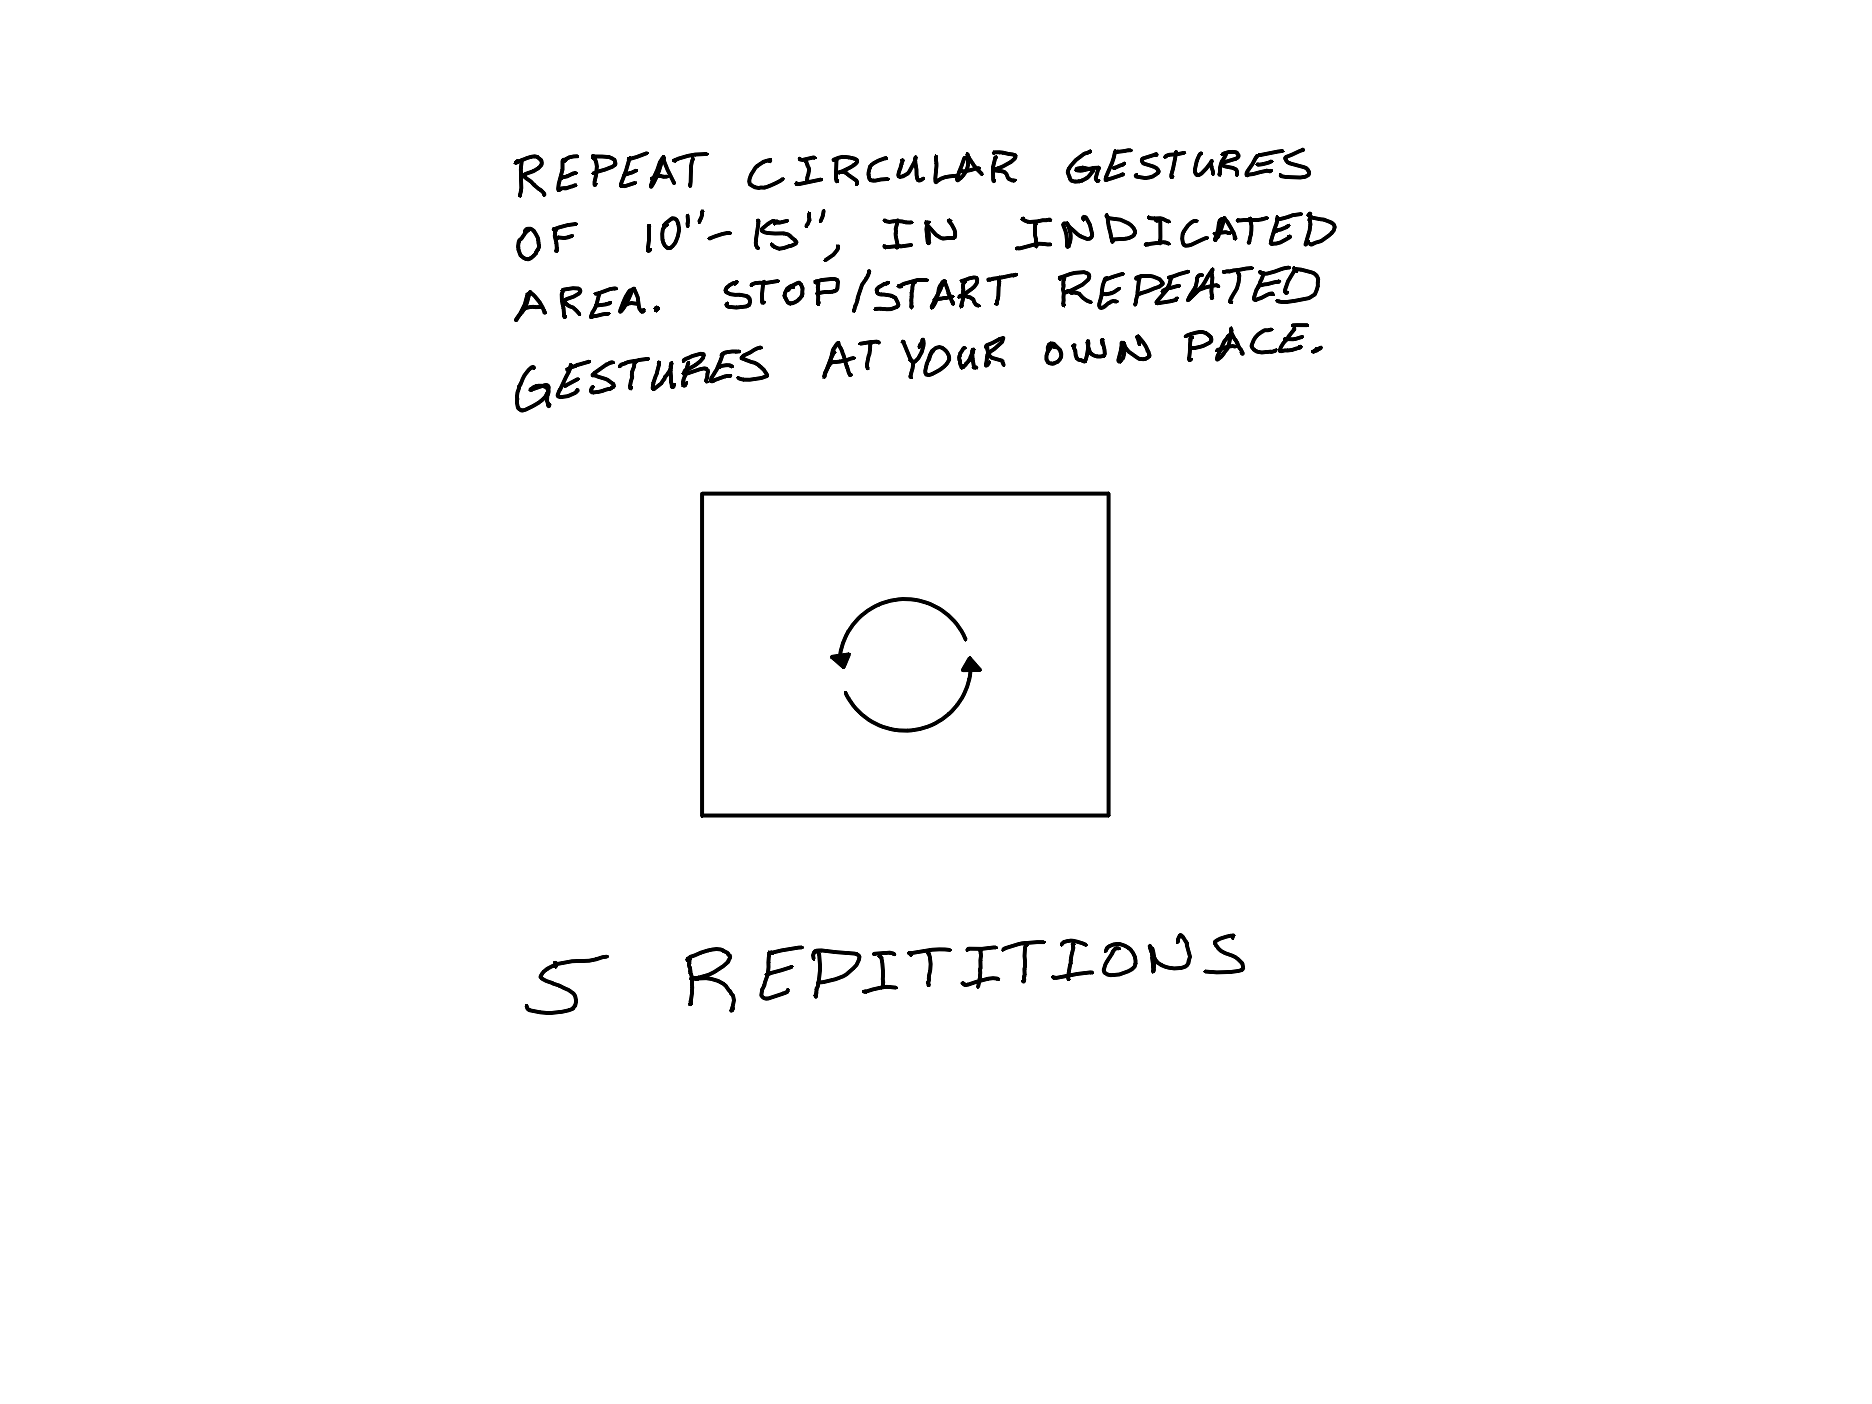 REPEAT CIRCULAR GESTURES
OF 10"-15", IN INDICATED
AREA. STOP/START REPEATED
GESTURES AT YOUR OWN PACE.
5 REPITITIONS